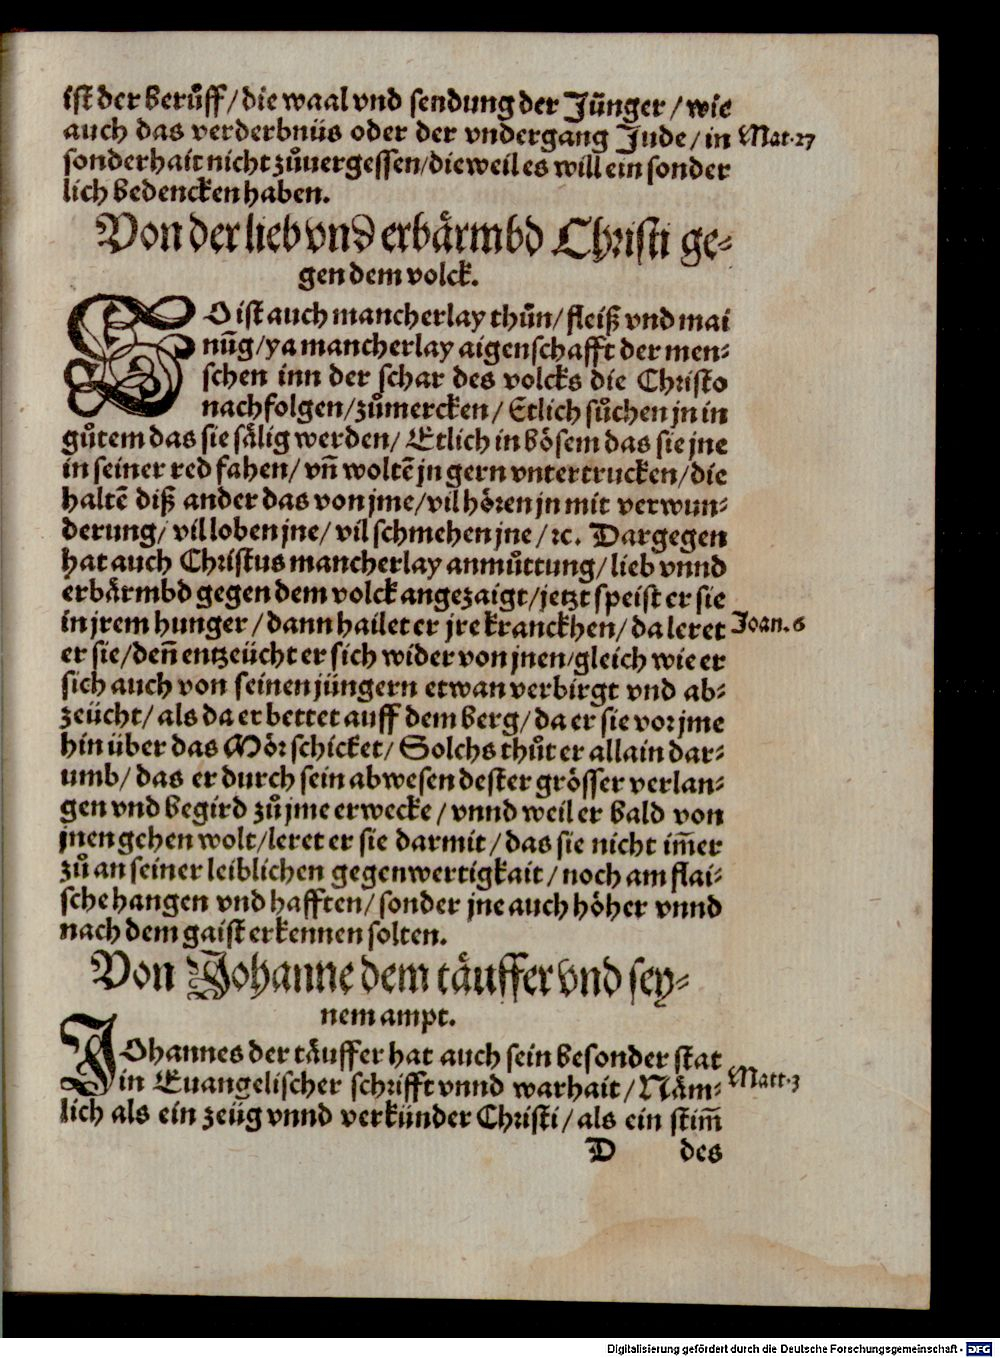 ist der berůff/die waal vnd sendung der Jünger/wie
auch das verderbnüs oder der vndergang Jude/in Mat.27
sonderhait nicht zůuergessen/dieweil es will ein sonder
lich bedencken haben.
Von der lieb vnd erbärmbd Christi ge-
gen dem volck.
SO ist auch mancherlay thůn/fleiß vnd mai
nūg/ya mancherlay aigenschafft der men-
schen inn der schar des volcks die Christo
nachfolgen/zůmercken/Etlich sůchen jn in
gůtem das sie sälig werden/Etlich in bösem das sie jne
in seiner red fahen/vn̄ woltē jn gern vntertrucken/die
haltē diß ander das von jme/vil hören jn mit verwun-
derung/vil loben jne/vil schmehen jne/ꝛc. Dargegen
hat auch Christus mancherlay anmůttung/lieb vnnd
erbärmbd gegen dem volck angezaigt/jetzt speist er sie
in jrem hunger/dann hailet er jre kranckhen/da leret Joan.6
er sie/den̄ entzeücht er sich wider von jnen/gleich wie er
sich auch von seinen jüngern etwan verbirgt vnd ab-
zeücht/als da er bettet auff dem berg/da er sie vor jme
hin über das Mör schicket/Solchs thůt er allain dar-
umb/das er durch sein abwesen dester grösser verlan-
gen vnd begird zů jme erwecke/vnnd weil er bald von
jnen gehen wolt/leret er sie darmit/das sie nicht im̄er
zů an seiner leiblichen gegenwertigkait/noch am flai-
sche hangen vnd hafften/sonder jne auch höher vnnd
nach dem gaist erkennen solten.
Von Johanne dem täuffer vnd sey-
nem ampt.
JOhannes der täuffer hat auch sein besonder stat
in Euangelischer schrifft vnnd warhait/Näm- Matt.3
lich als ein zeüg vnnd verkünder Christi/als ein stim̄
D des
Digitalisierung gefördert durch die Deutsche Forschungsgemeinschaft - DFG